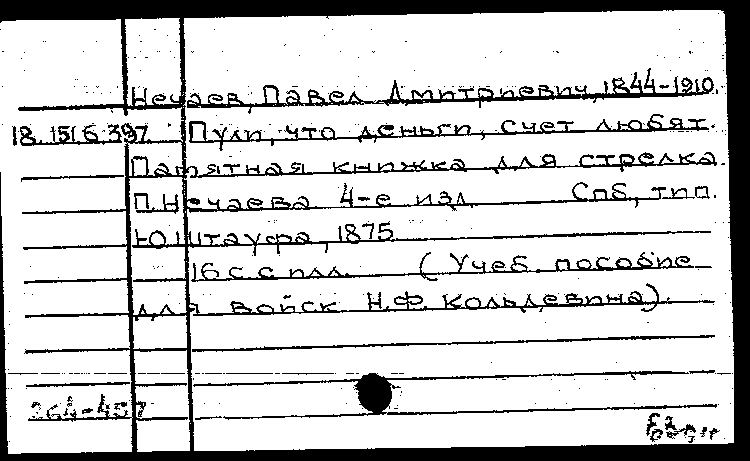 Нечаев, Павел Дмитриевич, 1844-1910.
18.151.6.397. Пули, что деньги, счет любят.
Памятная книжка для стрелка
П. Нечаева 4-е изд. Спб, тип.
Ю. Штауфа, 1875
16 с. с илл. (Учеб. пособие
для войск Н.Ф. Кольдевина).
264-457